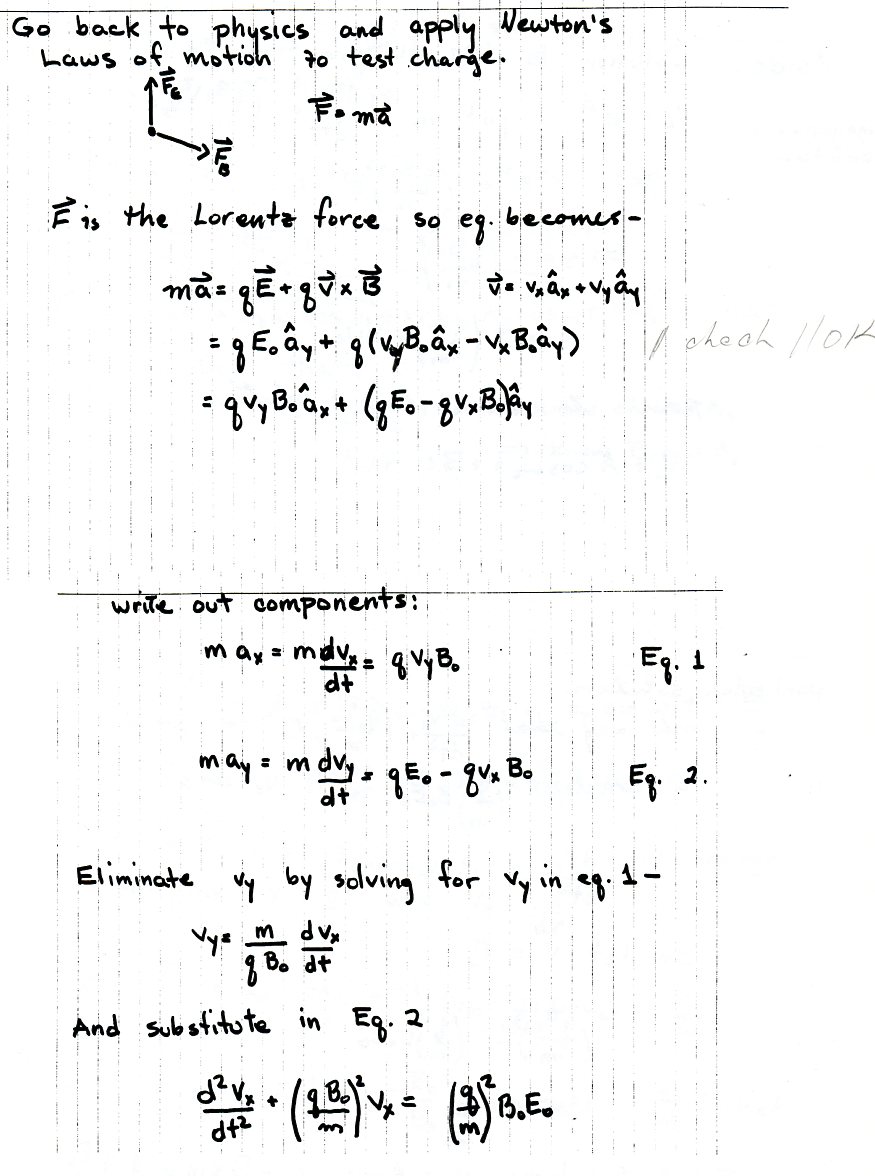 Go back to physics and apply Newton's
Laws of motion to test charge.
F⃗_E
F⃗ = ma⃗
F⃗_B
F⃗ is the Lorentz force so eq. becomes -
ma⃗ = qE⃗ + qv⃗ × B⃗    v⃗ = vₓâₓ + v_yâ_y
= qE₀â_y + q(v_yB₀âₓ - vₓB₀â_y)    check //OK
= qv_yB₀âₓ + (qE₀ - qvₓB₀)â_y
write out components:
m aₓ = m dvₓ/dt = qv_yB₀    Eq. 1
m a_y = m dv_y/dt = qE₀ - qvₓB₀    Eq. 2.
Eliminate v_y by solving for v_y in eq. 1 -
v_y = m/(qB₀) dvₓ/dt
And substitute in Eq. 2
d²vₓ/dt² + (qB₀/m)² vₓ = (q/m)² B₀E₀